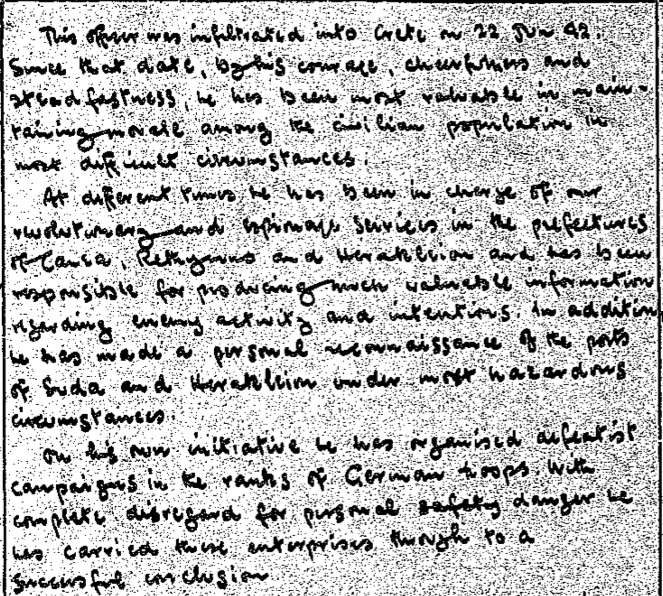 This officer was infiltrated into Crete on 22 Jun 42.
Since that date, by his courage, cheerfulness and
steadfastness, he has been most valuable in main-
taining morale among the civilian population in
most difficult circumstances.
At different times he has been in charge of our
revolutionary and espionage services in the prefectures
of Canea, Rethymno and Herakleion and has been
responsible for producing much valuable information
regarding enemy activity and intentions. In addition
he has made a personal reconnaissance of the ports
of Suda and Herakleion under most hazardous
circumstances.
On his own initiative he has organised defeatist
campaigns in the ranks of German troops. With
complete disregard for personal safety danger he
has carried these enterprises through to a
successful conclusion